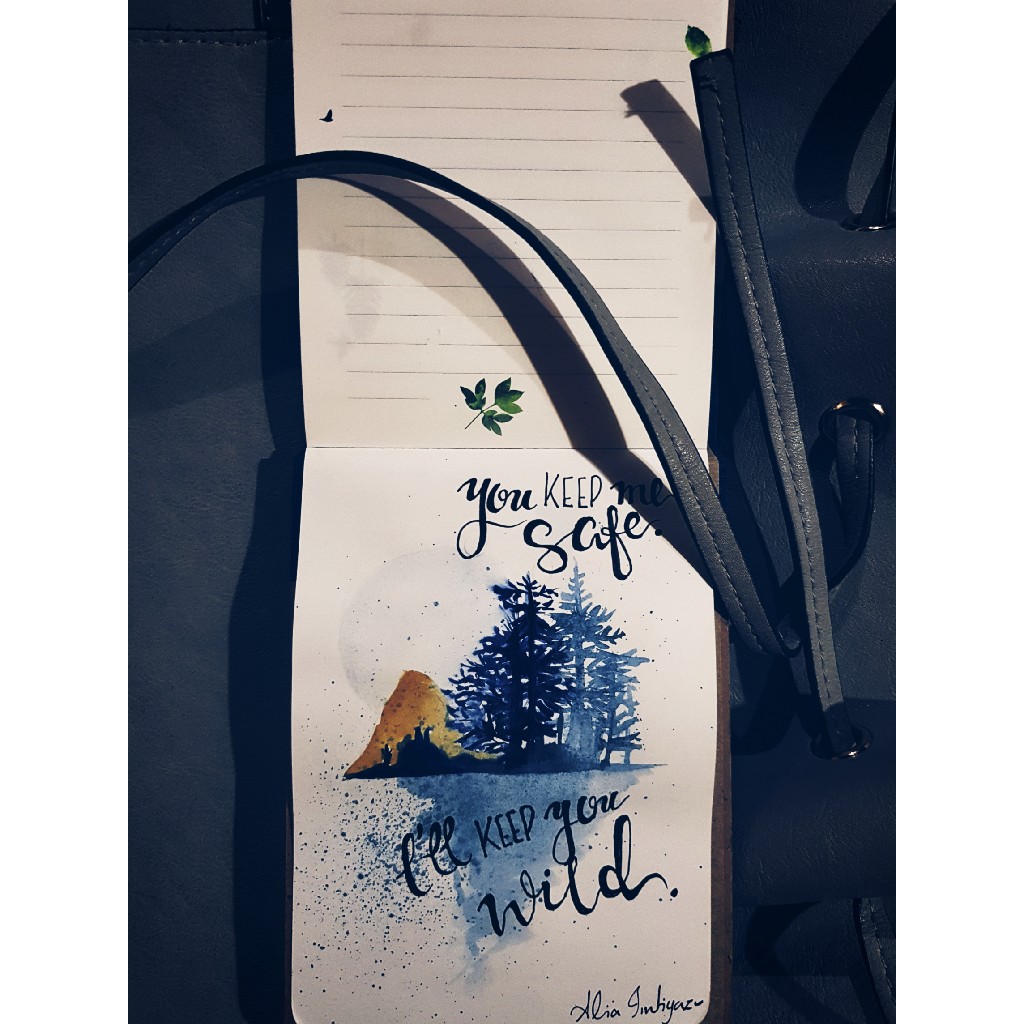 you KEEP me
safe.
I'll KEEP you
wild.
Alia Imtiyaz